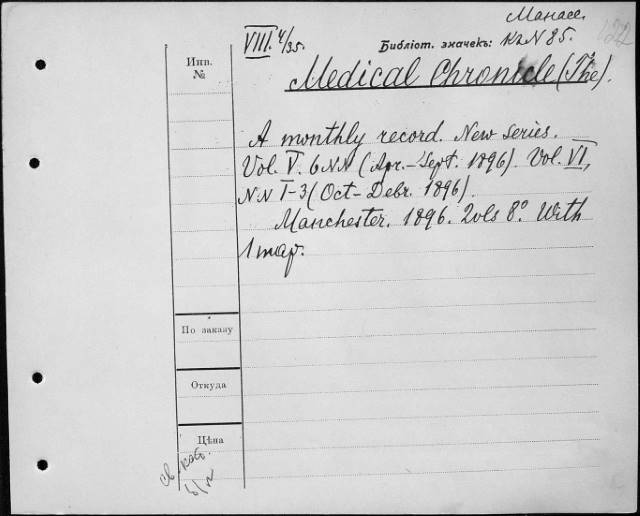 VIII. 4/35.
Манасс.
Библіот. значекъ: КгN 85.
122
Инв.
№
Medical Chronicle (The).
A monthly record. New series.
Vol. V. 6NN (Apr.-Sept. 1896). Vol. VI,
NN I-3 (Oct-Debr. 1896).
Manchester. 1896. 2vols 8°. With
1 map.
По заказу
Откуда
Цѣна
св. каб.
б/п